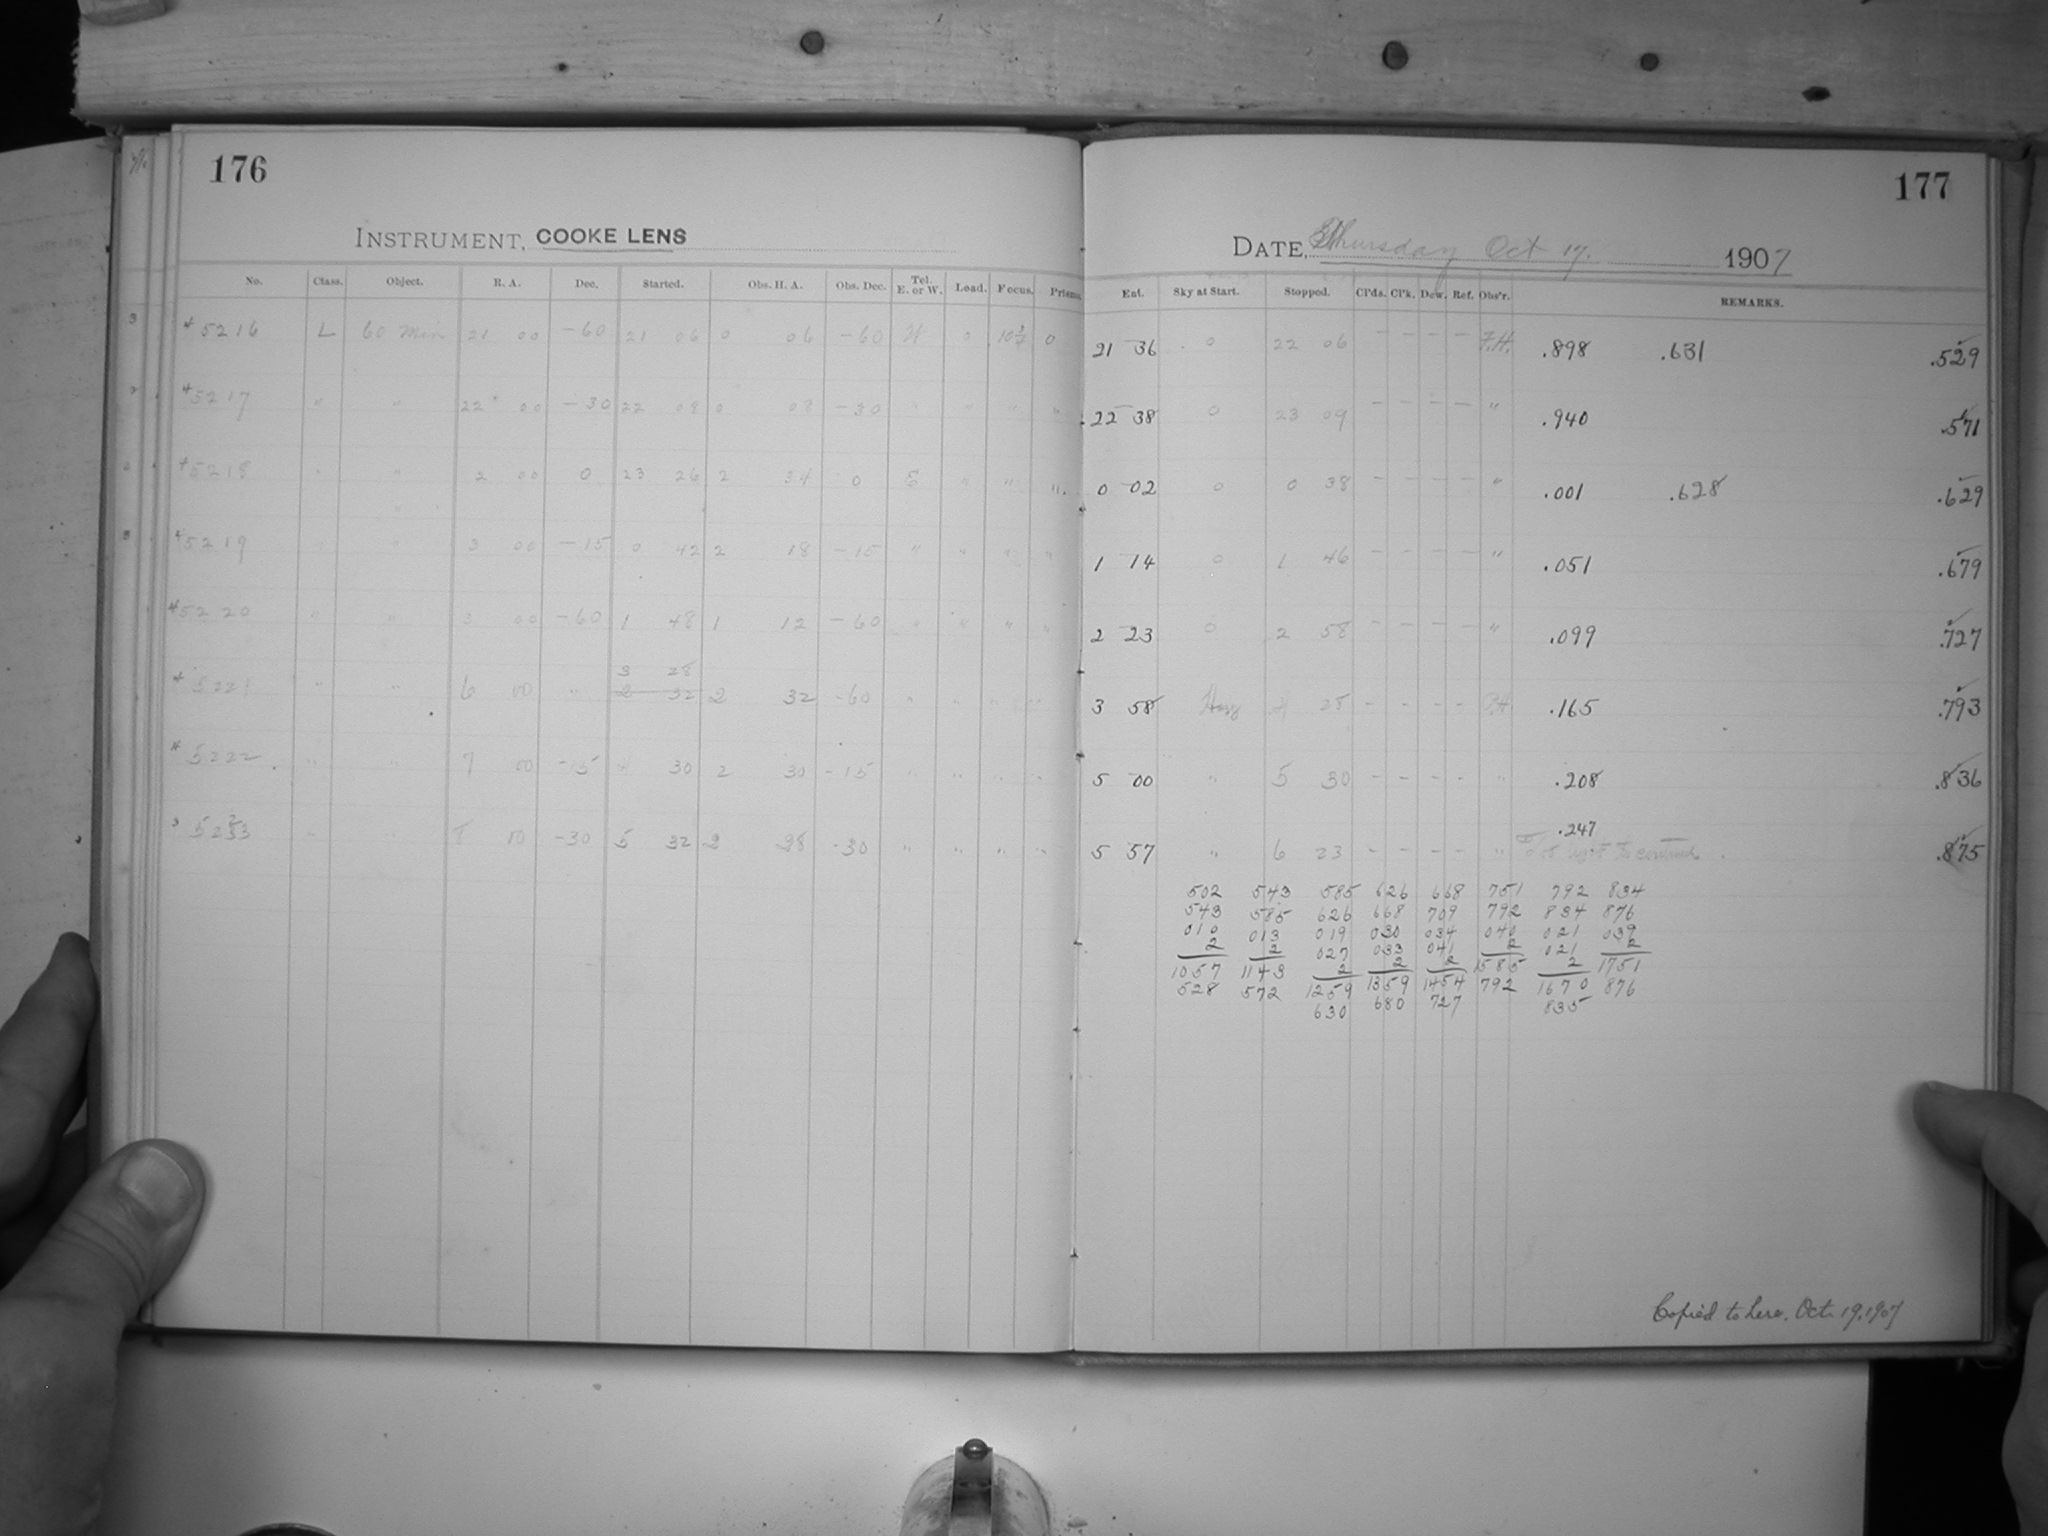 176
INSTRUMENT, COOKE LENS
No. Class. Object. R. A. Dec. Started. Obs. H. A. Obs. Dec. Tel. E. or W. Lead. Focus. Prisms.
5216 L 60 Min 21 00 -60 21 06 0 06 -60 W 0 0
5217 " " 22 00 -30 22 08 0 08 -30 " " " "
5218 " " 2 00 0 23 26 2 34 0 E " " "
5219 " " 3 00 -15 0 42 2 18 -15 " " " "
5220 " " 3 00 -60 1 48 1 12 -60 " " " "
3 28
5221 " " 6 00 " 2 32 2 32 -60 " " " "
5222 " " 7 00 -15 4 30 2 30 -15 " " " "
" " 00 -30 5 32 2 28 -30 " " " "
177
DATE, Thursday Oct 17. 1907
Ent. Sky at Start. Stopped. Cl'ds. Cl'k. Dew. Ref. Obs'r. REMARKS.
21 36 0 22 06 - - - - F.H. .898 .631 .529
22 38 0 23 09 - - - - " .940 .571
0 02 0 0 38 - - - - " .001 .628 .629
1 14 0 1 46 - - - - " .051 .679
2 23 0 2 58 - - - - " .099 .727
3 58 Hazy 28 - - - - .165 .793
5 00 " 5 30 - - - - " .208 .836
.247
5 57 " 6 23 - - - - " to continue .875
502 543 585 626 668 751 792 834
543 585 626 668 709 792 834 876
010 013 019 030 034 040 021 039
2 2 027 033 041 2 021 2
1057 1143 2 2 2 1585 2 1751
528 572 1259 1359 1454 792 1670 876
630 680 727 835
Copied to here. Oct. 19, 1907